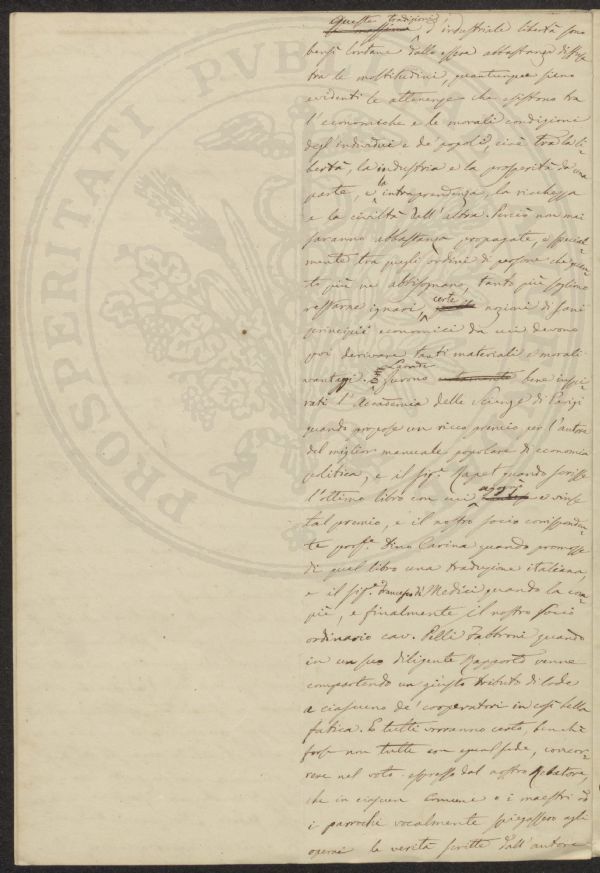 Queste tradizioni d'industriale libertà sono
bensì lontane dallo essere abbastanza diffuse
tra le moltitudini, quantunque sieno
evidenti le attenenze che esistono tra
l'economiche e le morali condizioni
degl'individui e de' popoli, cioè tra la li-
bertà, la industria e la prosperità da una
parte, e la intraprendenza, la ricchezza
e la civiltà dall'altra. Perciò non mai
saranno abbastanza propagate, e special-
mente tra quegli ordini di persone che quan-
to più ne abbisognano, tanto più sogliono
restarne ignari, certe nozioni di sani
principii economici da cui devono
poi derivare tanti materiali e morali
vantaggi. Laonde furono bene inspi-
rati l'Accademia delle Scienze di Parigi
quando propose un ricco premio per l'autore
del miglior manuale popolare di economia
politica, e il sig.r Rapet quando scrisse
l'ottimo libro con cui e vinse
tal premio, e il nostro socio corrisponden-
te prof.e Dino Carina quando promosse
di quel libro una traduzione italiana,
e il sig.r Francesco de' Medici quando la com-
piè, e finalmente il nostro socio
ordinario cav. Pelli Fabbroni quando
in un suo diligente Rapporto venne
compartendo un giusto tributo di lode
a ciascuno de' cooperatori in così bella
fatica. E tutti vorranno certo, benchè
forse non tutti con egual fede, concor-
rere nel voto espresso dal nostro Relatore,
che in ciascun Comune e i maestri ed
i parrochi vocalmente spiegassero agli
operai le verità scritte dall'autore
PROSPERITATI PVBLICAE